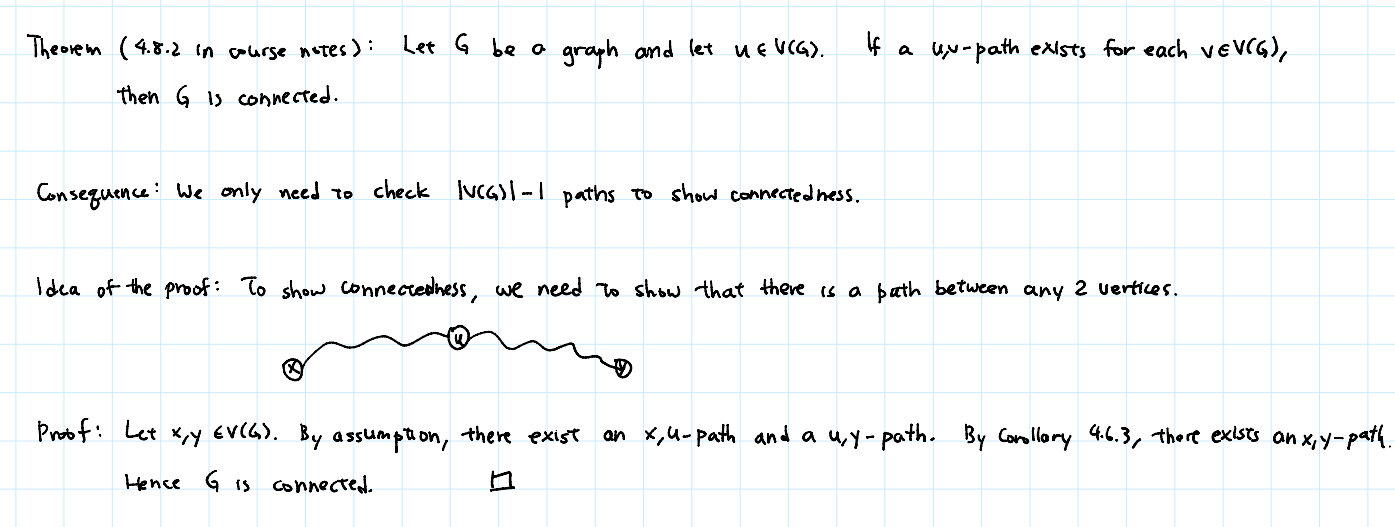 Theorem (4.8.2 in course notes): Let G be a graph and let u ∈ V(G). If a u,v-path exists for each v ∈ V(G),
then G is connected.
Consequence: We only need to check |V(G)|-1 paths to show connectedness.
Idea of the proof: To show connectedness, we need to show that there is a path between any 2 vertices.
x u y
Proof: Let x,y ∈ V(G). By assumption, there exist an x,u-path and a u,y-path. By Corollary 4.6.3, there exists an x,y-path.
Hence G is connected. □